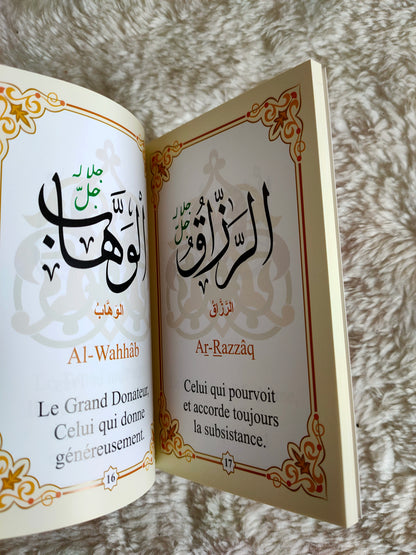 جل جلاله
الْوَهَّابُ
الوَهَّابُ
Al-Wahhâb
Le Grand Donateur,
Celui qui donne
généreusement.
16
جل جلاله
الرَّزَّاقُ
الرَّزَّاقُ
Ar-Razzâq
Celui qui pourvoit
et accorde toujours
la subsistance.
17